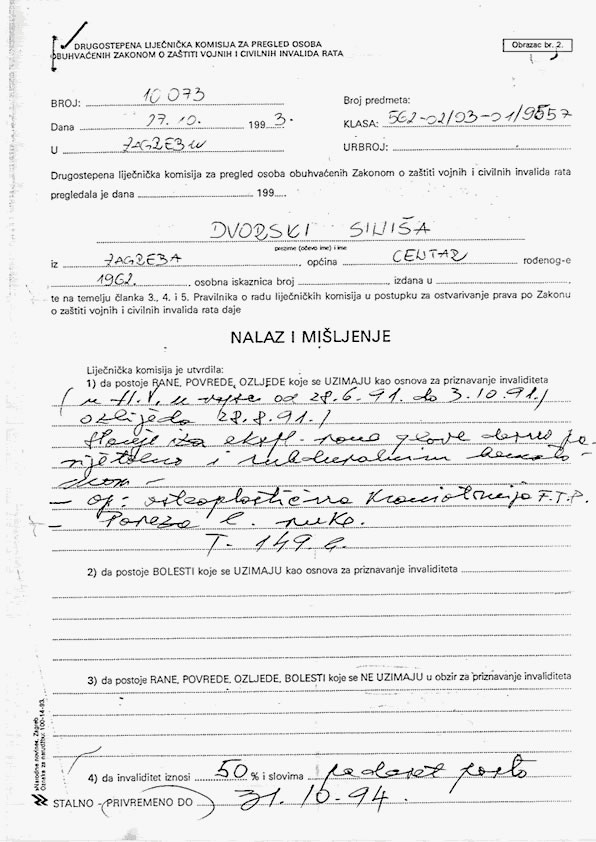 DRUGOSTEPENA LIJEČNIČKA KOMISIJA ZA PREGLED OSOBA
OBUHVAĆENIH ZAKONOM O ZAŠTITI VOJNIH I CIVILNIH INVALIDA RATA
Obrazac br. 2.
BROJ: 10 073
Dana 27. 10. 1993.
U ZAGREBU
Broj predmeta:
KLASA: 562-02/03-01/9557
URBROJ:
Drugostepena liječnička komisija za pregled osoba obuhvaćenih Zakonom o zaštiti vojnih i civilnih invalida rata
pregledala je dana 199
DVORSKI SINIŠA
prezime (očevo ime) i ime
iz ZAGREBA općina CENTAR rođenog-e
1962. osobna iskaznica broj izdana u
te na temelju članka 3., 4. i 5. Pravilnika o radu liječničkih komisija u postupku za ostvarivanje prava po Zakonu
o zaštiti vojnih i civilnih invalida rata daje
NALAZ I MIŠLJENJE
Liječnička komisija je utvrdila:
1) da postoje RANE, POVREDE, OZLJEDE koje se UZIMAJU kao osnova za priznavanje invaliditeta
(u H.V. u od 28.6.91. do 3.10.91./
28.8.91./
Stanje iza ekspl. rane glave desno pa-
rijetalno i subduralnim hemato-
mom -
- op: osteoplastična kraniotomija F.T.P.
- Pareza l. ruke.
T. 149
2) da postoje BOLESTI koje se UZIMAJU kao osnova za priznavanje invaliditeta
3) da postoje RANE, POVREDE, OZLJEDE, BOLESTI koje se NE UZIMAJU u obzir za priznavanje invaliditeta
4) da invaliditet iznosi 50 % i slovima pedeset posto
STALNO - PRIVREMENO DO 31. 10. 94.
»Narodne novine«, Zagreb
Oznaka za narudžbu: 100-14-93.